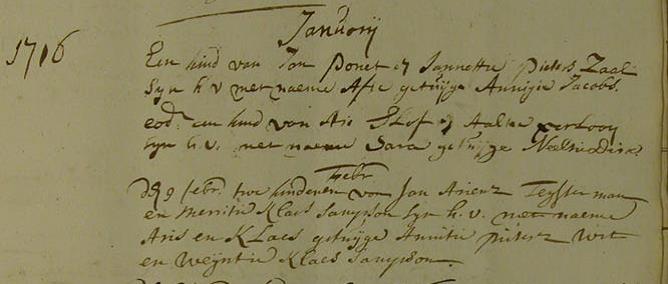 Janvorij
1716
Een kind van Jan Ponet & Jannettie Pieters Zaal
Syn h v met naeme Afie getuijge Annijie Jacobs.
eod. een kind van Aris Slof & Aaltie
syn h. v. met naeme Sara getuijge Neeltie dirx
febr
d 9 febr. twe kinderen von Jan Arienz Teysterman
en Merritie Klaes Sampson syn h. v. met naeme
Aris en KLaes getuijge Annitie pieterz Wit
en Weijntie Klaes Sampson.